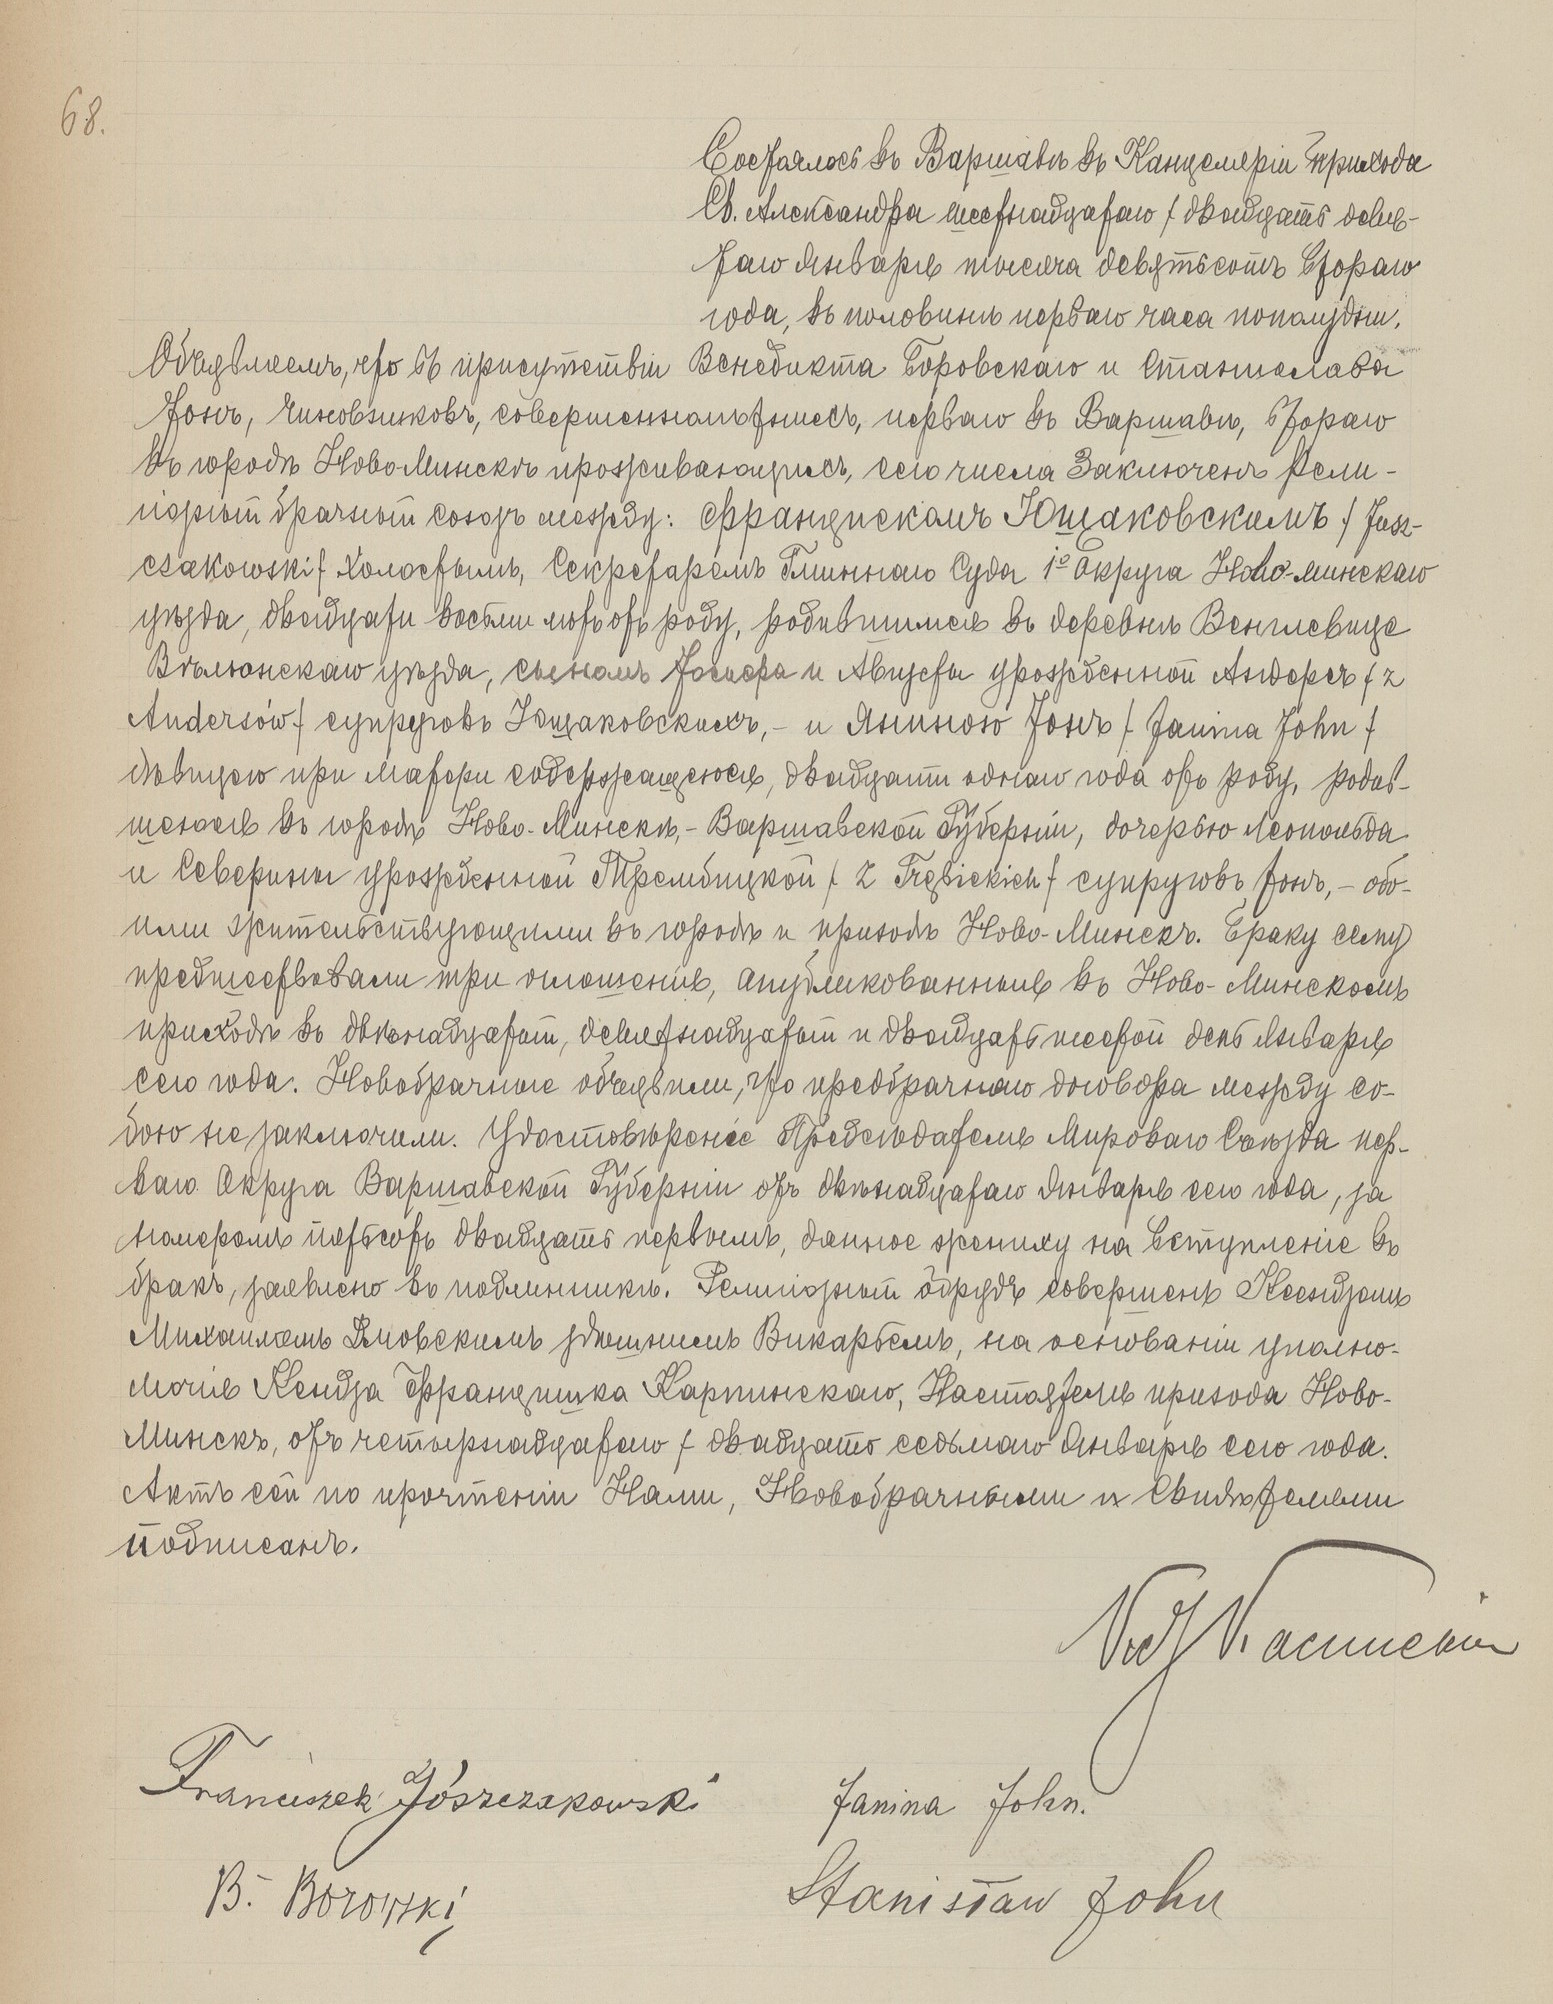 68.
Состоялось въ Варшавѣ въ Канцеляріи прихода
Св. Александра шестнадцатаго / двадцать девя-
таго Января тысяча девятьсотъ втораго
года, въ половинѣ перваго часа пополудни.
Объявляемъ, что въ присутствіи Венедикта Боровскаго и Станислава
Іонъ, чиновниковъ, совершеннолѣтнихъ, перваго въ Варшавѣ, втораго
въ городѣ НовоМинскѣ проживающихъ, сего числа заключенъ рели-
гіозный брачный союзъ между: Францискомъ Ющаковскимъ / Jusz-
czakowski / холостымъ, Секретаремъ Гминнаго Суда 1º Округа Ново-Минскаго
уѣзда, двадцати восьми лѣтъ отъ роду, родившимся въ деревнѣ Венглевице
Вѣлюнскаго уѣзда, сыномъ Іосифа и Августы урожденной Андерсъ / z
Andersów / супруговъ Ющаковскихъ, - и Яниною Іонъ / Janina John /
дѣвицею при матери содержащеюся, двадцати однаго года отъ роду, родив-
шеюся въ городѣ Ново-Минскѣ, - Варшавской Губерніи, дочерью Леопольда
и Северины урожденной Трембицкой / z Trębickich / супруговъ Іонъ, - обо-
ими жительствующими въ городѣ и приходѣ Ново-Минскъ. Браку сему
предшествовали три оглашенія, опубликованныя въ Ново-Минскомъ
приходѣ въ двѣнадцатый, девятнадцатый и двадцать шестой день Января
сего года. Новобрачные объявили, что предбрачнаго договора между со-
бою не заключили. Удостовѣреніе Предсѣдателя Мироваго Съѣзда пер-
ваго Округа Варшавской Губерніи отъ двѣнадцатаго Января сего года, за
номеромъ пятьсотъ двадцать первымъ, данное жениху на вступленіе въ
бракъ, заявлено въ подлинникѣ. Религіозный обрядъ совершенъ Ксендзомъ
Михаиломъ здѣшнимъ Викаріемъ, на основаніи уполно-
мочія Ксендза Францишка Карпинскаго, Настоятеля прихода Ново-
Минскъ, отъ четырнадцатаго / двадцать седьмаго Января сего года.
Актъ сей по прочтеніи Нами, Новобрачными и Свидѣтелями
подписанъ.
Franciszek Jószczakowski
Janina John.
B. Borowski
Stanisław John